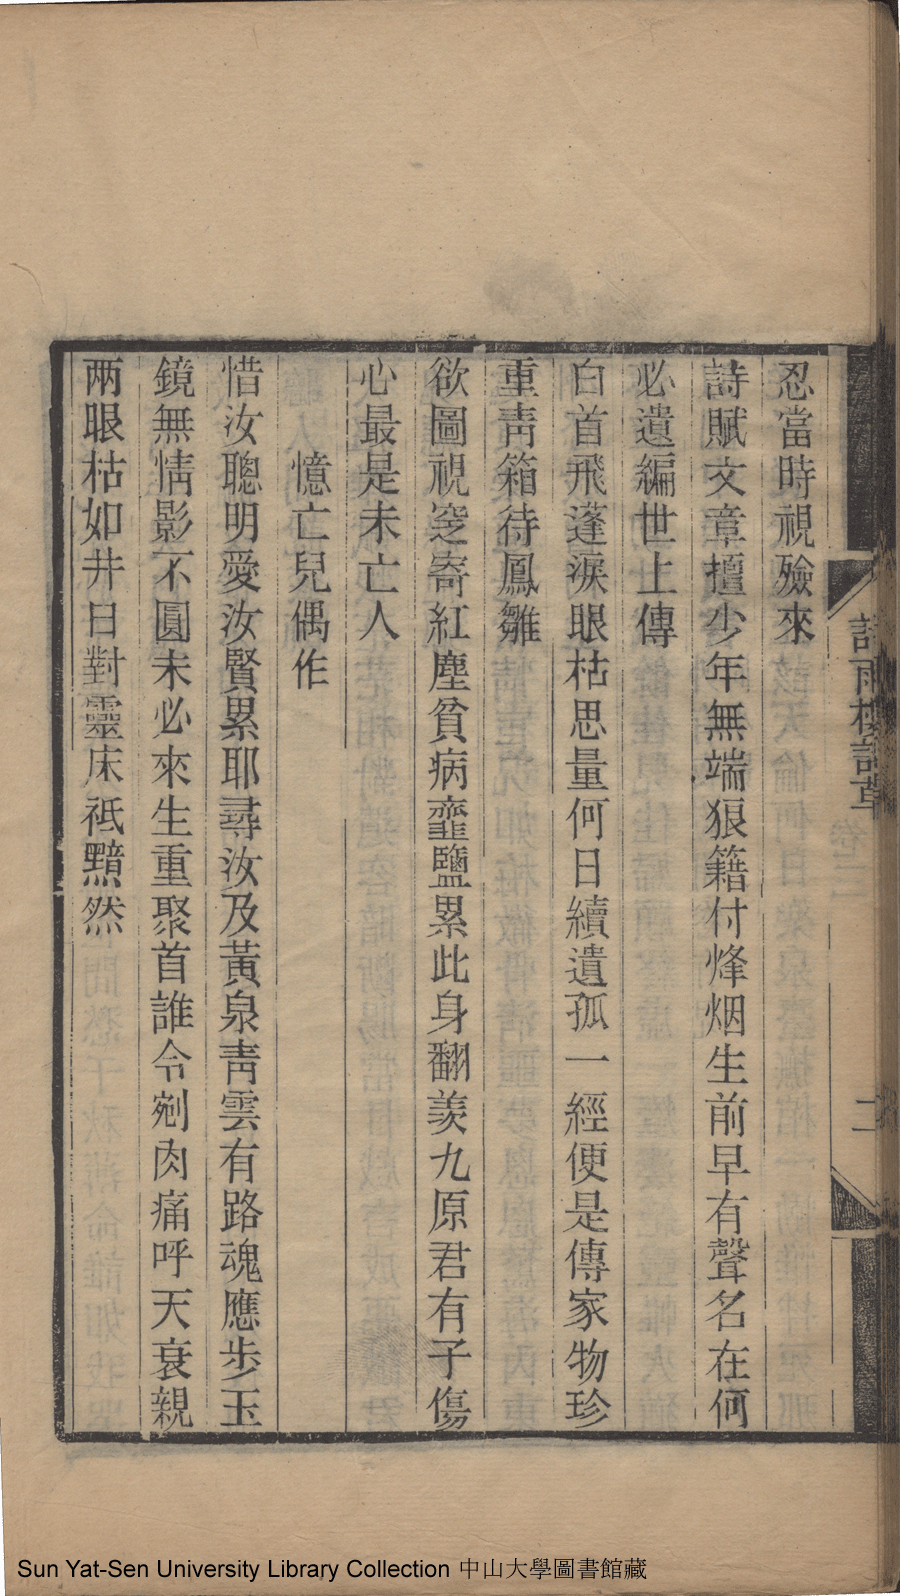 忍當時視殮來
詩賦文章擅少年無端狼籍付烽烟生前早有聲名在何
必遺編世上傳
白首飛蓬淚眼枯思量何日續遺孤一經便是傳家物珍
重靑箱待鳳雛
欲圖視窆寄紅塵貧病虀鹽累此身翻羨九原君有子傷
心最是未亡人
憶亡兒偶作
惜汝聰明愛汝賢累耶尋汝及黃泉靑雲有路魂應步玉
鏡無情影不圓未必來生重聚首誰令剜肉痛呼天衰親
两眼枯如井日對靈床祗黯然
雨樓詩草
二
Sun Yat-Sen University Library Collection 中山大學圖書館藏